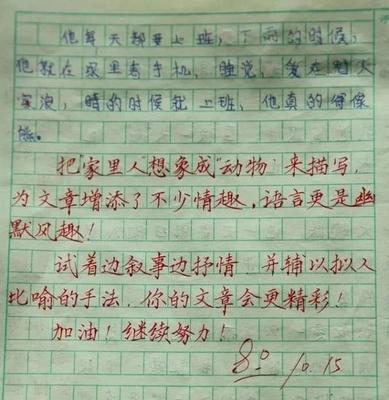 他每天都要上班，下雨的时候，
他就在家里看手机，睡觉，
晴的时候就上班，他真的好像
熊。
把家里人想象成“动物”来描写，
为文章增添了不少情趣，语言更是幽
默风趣！
试着边叙事边抒情，并辅以拟人
比喻的手法，你的文章会更精彩！
加油！继续努力！
80 10.15